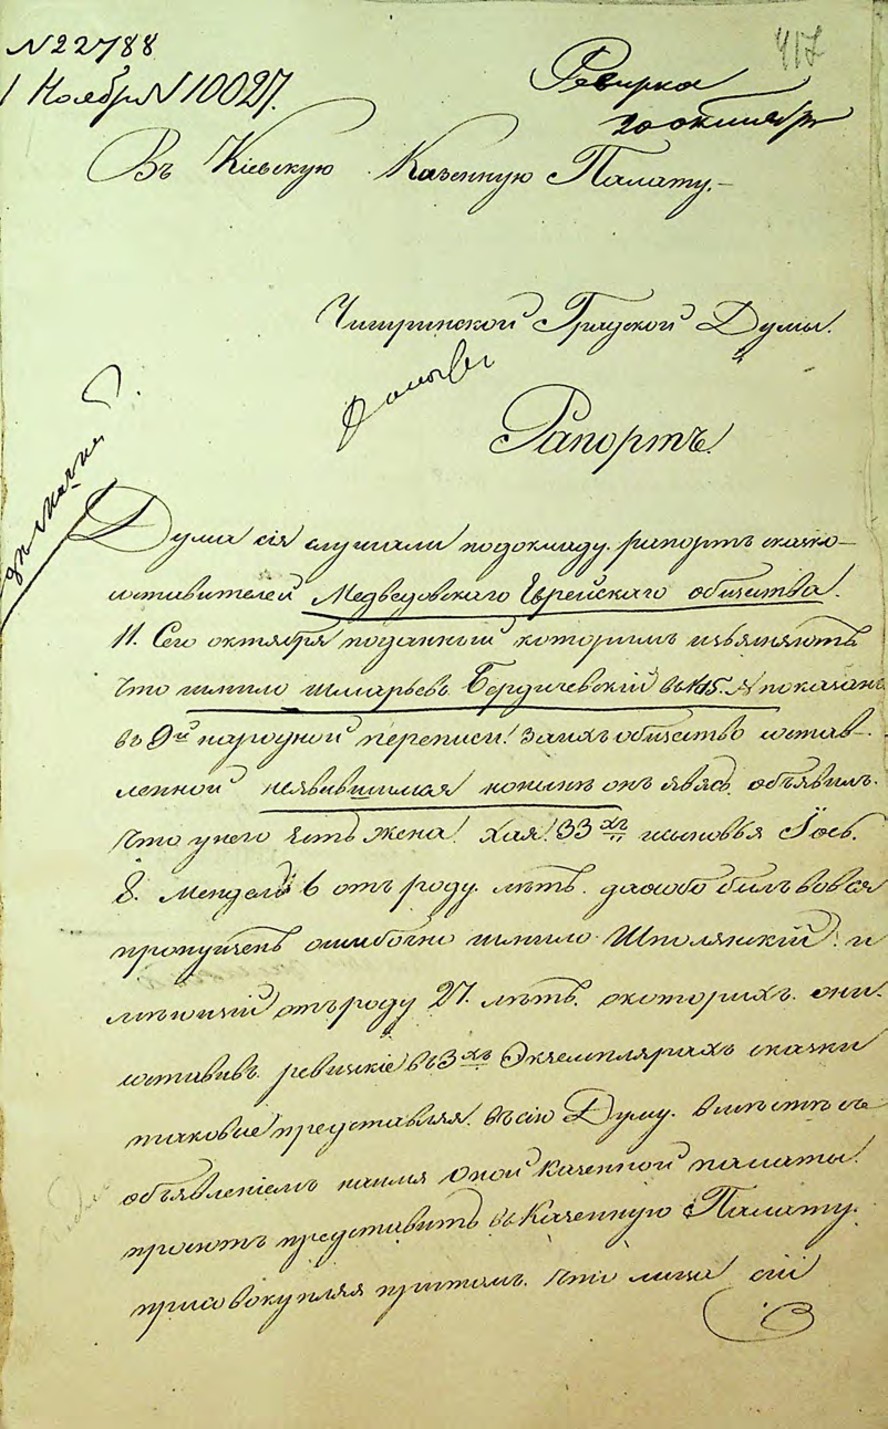 417
N 22788
1 Ноября N 10027.
20 октября
Въ Кіевскую Казенную Палату.
Чигиринской Градской Думы.
Рапортъ.
Дума сія слушали по докладу рапортъ сказко-
составителей Медведовскаго Еврейскаго общества.
11. Сего октября поданный которимъ изъясняютъ
Что шмило шмарьевъ Бердичевскій въ № 15. показанъ
въ 9й народной переписи! за ихъ общество состав-
ленной неявившимся нонынѣ онъ явясь объявилъ.
Что у него Есть жена! хая! 33хъ исыновья Іось.
8. Мендель 6 отъ роду лѣтъ. даособо билъ вовся
пропущенъ ошибочно шмило Шполянскій! и
мѣющій отъ роду 27. лѣтъ. окоторихъ они.
составивъ ревизскіе въ 3хъ Экземплярахъ сказки
таковые представляя. въ сію Думу. вместѣ съ
объявленіемъ на имя Оной Казенной палаты.
просятъ представить въ Казенную Палату.
присовокупляя притомъ. что лица сіи